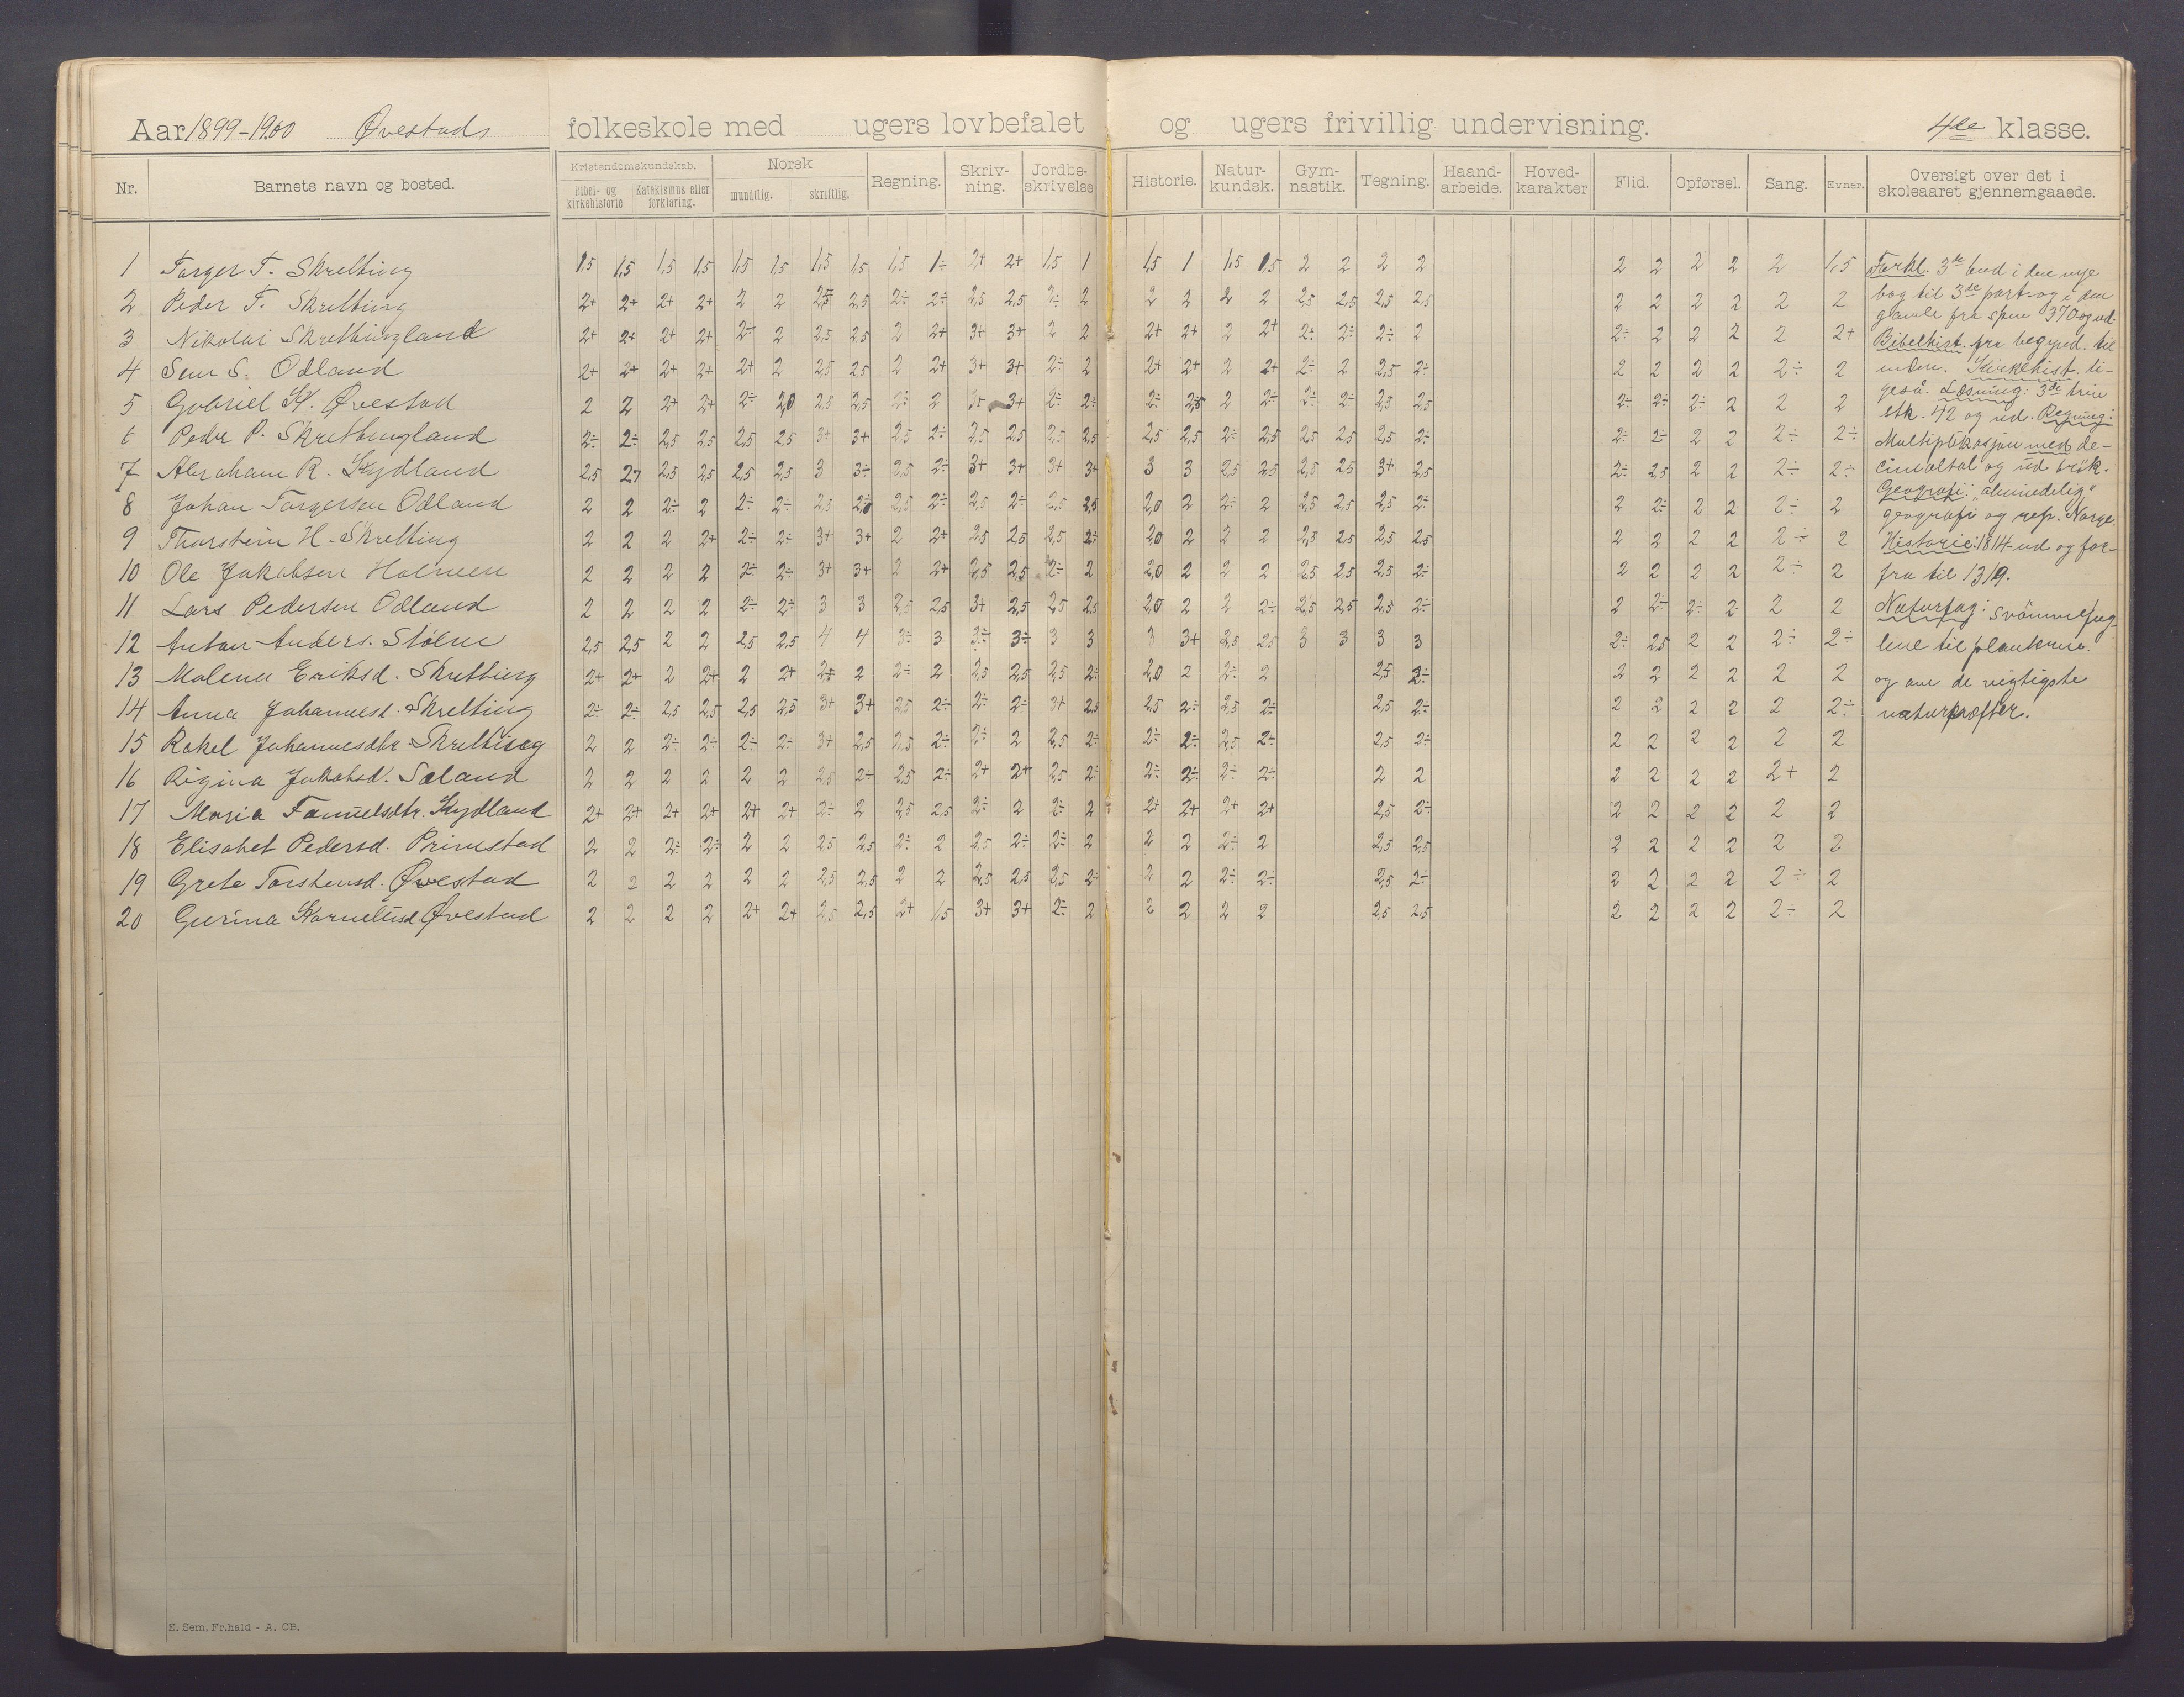 Aar 1899-1900 Øvestads folkeskole med ugers lovbefalet og ugers frivillig undervisning. 4de klasse.
Nr. Barnets navn og bosted. Kristendomskundskab. Bibel- og kirkehistorie Katekismus eller forklaring. Norsk mundtlig. skriftlig. Regning. Skriv-ning. Jordbe-skrivelse Historie. Natur-kundsk. Gym-nastik. Tegning. Haand-arbeide. Hoved-karakter Flid. Opførsel. Sang. Evner. Oversigt over det i skoleaaret gjennemgaaede.
1 Torger T. Skretting 1,5 1,5 1,5 1,5 1,5 1,5 1,5 1,5 1,5 1÷ 2+ 2+ 1,5 1 1,5 1 1,5 1,5 2 2 2 2 2 2 2 2 2 1,5
2 Peder T. Skretting 2+ 2+ 2+ 2+ 2 2 2,5 2,5 2÷ 2÷ 2,5 2,5 2÷ 2 2 2 2 2 2,5 2,5 2,5 2,5 2 2 2 2 2 2
3 Nikolai Skrettingland 2+ 2+ 2+ 2+ 2÷ 2 2,5 2,5 2 2+ 3+ 3+ 2 2 2+ 2+ 2 2+ 2÷ 2÷ 2÷ 2 2÷ 2 2 2 2 2+
4 Sem S. Odland 2+ 2+ 2+ 2+ 2+ 2 2,5 2,5 2 2+ 3+ 3+ 2÷ 2 2+ 2+ 2 2+ 2÷ 2 2,5 2÷ 2 2 2 2 2÷ 2
5 Gabriel K. Øvestad 2 2 2+ 2+ 2÷ 2,0 2,5 2,5 2÷ 2 3+ 3+ 2÷ 2÷ 2÷ 2,5 2 2÷ 2÷ 2÷ 2,5 2,5 2÷ 2÷ 2÷ 2 2 2
6 Peder P. Skrettingland 2÷ 2÷ 2,5 2,5 2,5 2,5 3+ 3+ 2,5 2÷ 2,5 2,5 2,5 2,5 2,5 2,5 2÷ 2,5 2,5 2,5 2,5 2÷ 2÷ 2÷ 2 2 2÷ 2÷
7 Abraham R. Kydland 2,5 2,7 2,5 2,5 2,5 2,5 3 3÷ 2,5 2÷ 3+ 3+ 3+ 3+ 3 3 2,5 2,5 2,5 2,5 3+ 2,5 2÷ 2,5 2 2 2÷ 2÷
8 Johan Torgersen Odland 2 2 2÷ 2 2÷ 2÷ 2,5 2,0 2,5 2÷ 2,5 2÷ 2,5 2,5 2,0 2 2÷ 2 2,5 2,5 2,5 2÷ 2 2÷ 2 2 2÷ 2
9 Thorstein H. Skretting 2 2 2 2+ 2÷ 2÷ 3+ 3+ 2 2+ 2,5 2,5 2,5 2÷ 2,0 2 2 2 2,5 2,5 2,5 2,5 2 2 2 2 2÷ 2
10 Ole Jakobsen Holmen 2 2 2 2 2÷ 2÷ 3+ 3+ 2 2+ 2,5 2,5 2÷ 2 2,0 2 2 2 2,5 2,5 2,5 2÷ 2 2 2 2 2÷ 2
11 Lars Pedersen Odland 2 2 2 2 2÷ 2÷ 3 3 2,5 2,5 3+ 2,5 2,5 2,5 2,0 2 2 2÷ 2,5 2,5 2,5 2÷ 2 2÷ 2÷ 2 2 2
12 Anton Anders. Stølen 2,5 2,5 2 2 2,5 2,5 4 4 3÷ 3 3÷ 3÷ 3 3 3 3+ 2,5 2,5 3 3 3 3 2÷ 2,5 2 2 2÷ 2÷
13 Malena Eriksd. Skretting 2+ 2+ 2 2+ 2 2+ 2+ 2 2÷ 2 2,5 2,5 2,5 2÷ 2,0 2 2÷ 2 2,5 2÷ 2 2 2 2 2 2
14 Anna Johannesd. Skretting 2÷ 2÷ 2,5 2,5 2,5 2,5 3+ 3+ 2,5 2÷ 2÷ 2÷ 3+ 2,5 2,5 2÷ 2,5 2÷ 2,5 2÷ 2 2 2 2 2 2÷
15 Rakel Johannesdtr Skretting 2 2 2÷ 2÷ 2÷ 2÷ 3+ 2,5 2,5 2÷ 2÷ 2 2,5 2÷ 2÷ 2÷ 2,5 2÷ 2,5 2÷ 2 2 2 2 2 2
16 Rigina Jakobsd. Søland 2 2 2 2 2 2 2,5 2÷ 2,5 2÷ 2+ 2+ 2,5 2÷ 2÷ 2÷ 2÷ 2÷ 2 2 2 2 2 2 2+ 2
17 Maria Samuelsdtr. Kydland 2+ 2+ 2+ 2+ 2+ 2+ 2÷ 2 2,5 2,5 2÷ 2 2÷ 2 2+ 2+ 2+ 2+ 2,5 2÷ 2 2 2 2 2 2
18 Elisabet Pedersd. Primstad 2 2 2÷ 2÷ 2 2 2,5 2,5 2÷ 2 2,5 2÷ 2÷ 2 2 2 2÷ 2 2,5 2,5 2 2 2 2 2 2
19 Grete Torstensd. Øvestad 2 2 2 2 2 2 2,5 2,5 2 2 2,5 2,5 2,5 2÷ 2 2 2÷ 2÷ 2,5 2÷ 2 2 2 2 2÷ 2
20 Gurina Korneliusd. Øvestad 2 2 2 2 2+ 2+ 2,5 2,5 2+ 1,5 3+ 3+ 2÷ 2 2 2 2 2 2,5 2,5 2 2 2 2 2÷ 2
Forkl. 3de bud i den nye
bog til 3de part og i den
gamle fra spm 370 og ud.
Bibelhist. fra begynd. til
enden. Kirkehist. li-
geså. Læsning: 3de trin
stk. 42 og ud. Regning:
Multiplikasjon med de-
cimaltal og ud brök.
Geografi: "almindelig"
geografi og rep. Norge.
Historie: 1814 ud og for-
fra til 1319.
Naturfag: Svömmefug-
lene til planterne.
og ave de vigtigste
naturkræfter.
E. Sem, Fr.hald - A. CB.